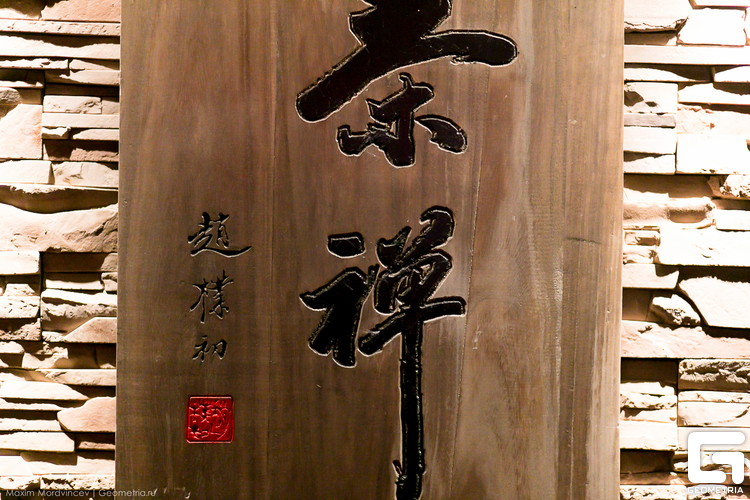 茶禅
趙樸初
Maxim Mordvincev | Geometria.ru
GEOMETRIA